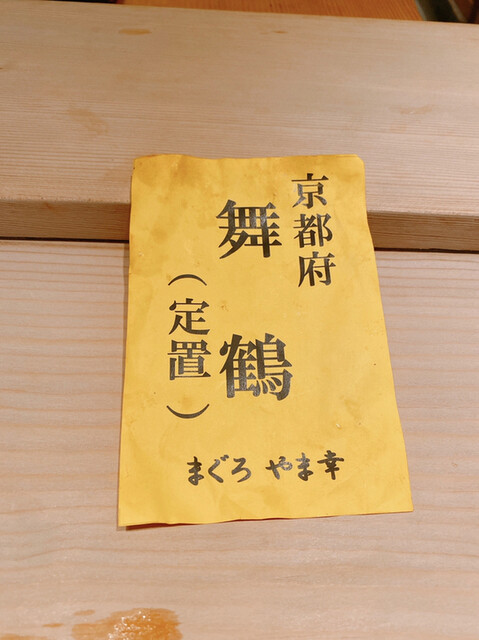 京都府
舞鶴
（定置）
まぐろ やま幸